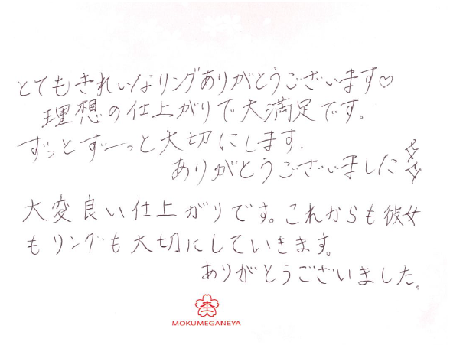 とてもきれいなリングありがとうございます♡
理想の仕上がりで大満足です。
ずっとずーっと大切にします.
ありがとうございました☆☆
大変良い仕上がりです。これからも彼女
もリングも大切にしていきます。
ありがとうございました。
MOKUMEGANEYA